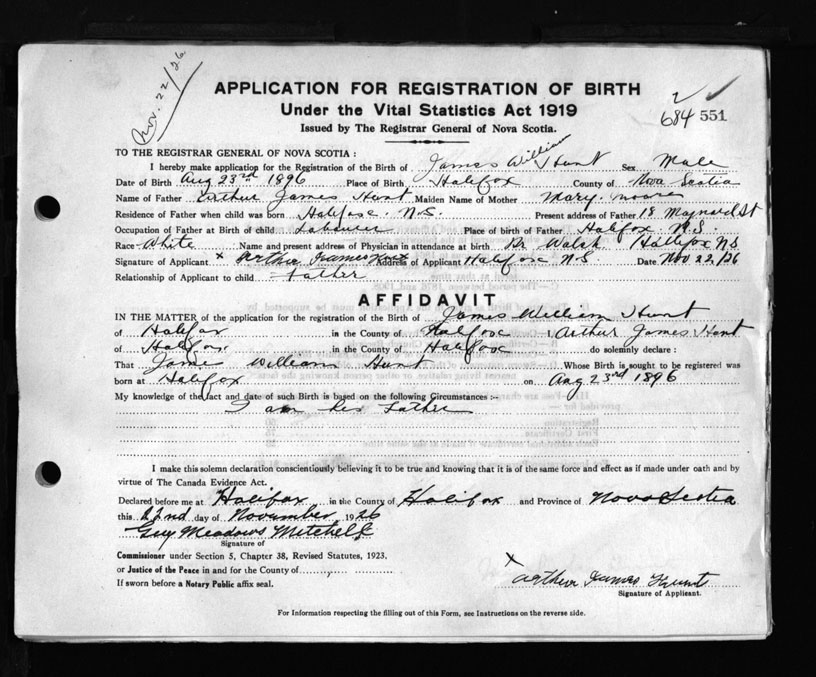 Nov. 22/26
APPLICATION FOR REGISTRATION OF BIRTH
Under the Vital Statistics Act 1919
Issued by The Registrar General of Nova Scotia.
2
684 551
TO THE REGISTRAR GENERAL OF NOVA SCOTIA:
I hereby make application for the Registration of the Birth of James William Hunt Sex Male
Date of Birth Aug 23rd 1896 Place of Birth Halifax County of Nova Scotia
Name of Father Arthur James Hunt Maiden Name of Mother Mary Moore
Residence of Father when child was born Halifax. N.S. Present address of Father 18 Maynard St
Occupation of Father at Birth of child Labourer Place of birth of Father Halifax N.S.
Race White Name and present address of Physician in attendance at birth Dr Walsh Halifax N S
Signature of Applicant x Arther James Hunt Address of Applicant Halifax N S Date Nov 22/26
Relationship of Applicant to child Father
AFFIDAVIT
IN THE MATTER of the application for the registration of the Birth of James William Hunt
of Halifax in the County of Halifax I, Arthur James Hunt
of Halifax in the County of Halifax do solemnly declare:
That James William Hunt Whose Birth is sought to be registered was
born at Halifax on Aug 23rd 1896
My knowledge of the fact and date of such Birth is based on the following Circumstances:-
I am his Father
I make this solemn declaration conscientiously believing it to be true and knowing that it is of the same force and effect as if made under oath and by
virtue of The Canada Evidence Act.
Declared before me at Halifax in the County of Halifax and Province of Nova Scotia
this 22nd day of November 1926
Guy Meadows Mitchell
Signature of
Commissioner under Section 5, Chapter 38, Revised Statutes, 1923.
or Justice of the Peace in and for the County of
If sworn before a Notary Public affix seal.
x Arther James Hunt
Signature of Applicant.
For Information respecting the filling out of this Form, see Instructions on the reverse side.